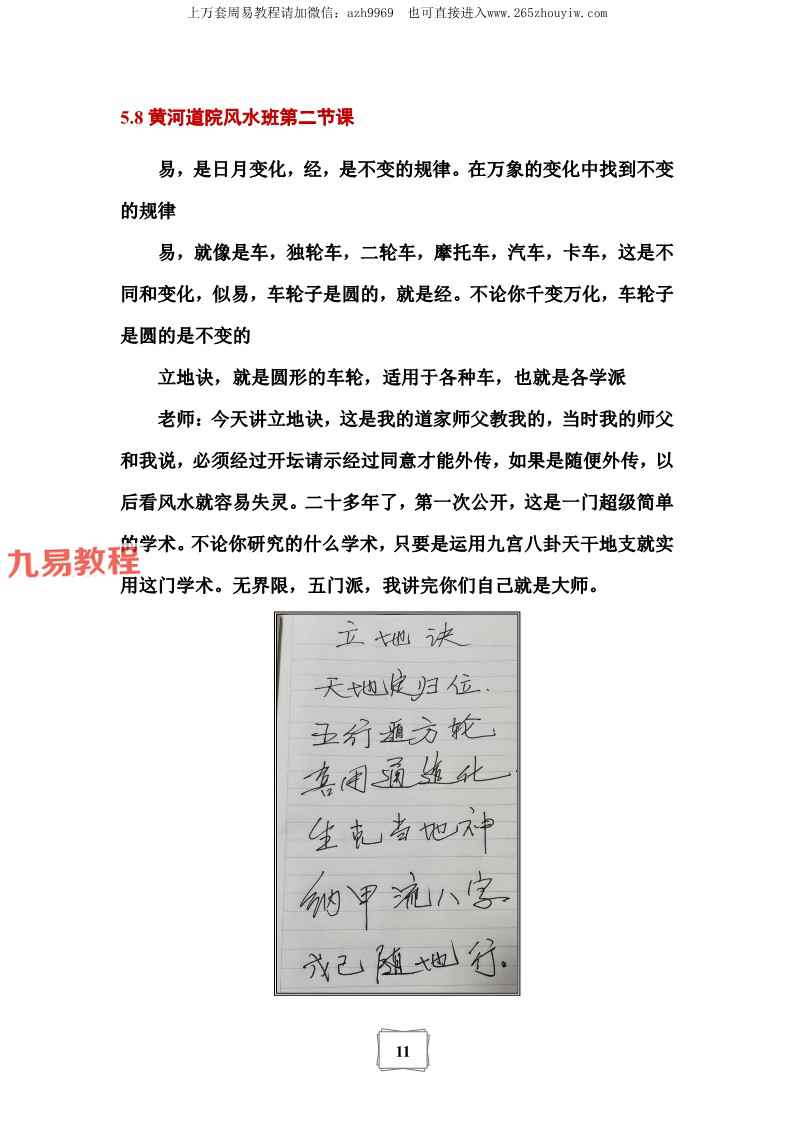 上万套周易教程请加微信：azh9969　也可直接进入www.265zhouyiw.com
5.8 黄河道院风水班第二节课
易，是日月变化，经，是不变的规律。在万象的变化中找到不变
的规律
易，就像是车，独轮车，二轮车，摩托车，汽车，卡车，这是不
同和变化，似易，车轮子是圆的，就是经。不论你千变万化，车轮子
是圆的是不变的
立地诀，就是圆形的车轮，适用于各种车，也就是各学派
老师：今天讲立地诀，这是我的道家师父教我的，当时我的师父
和我说，必须经过开坛请示经过同意才能外传，如果是随便外传，以
后看风水就容易失灵。二十多年了，第一次公开，这是一门超级简单
的学术。不论你研究的什么学术，只要是运用九宫八卦天干地支就实
用这门学术。无界限，五门派，我讲完你们自己就是大师。
九易教程
立地诀
天地定归位.
五行遁方轮
喜用通造化.
生克当地神
纳甲流八字
戊己随地行。
11